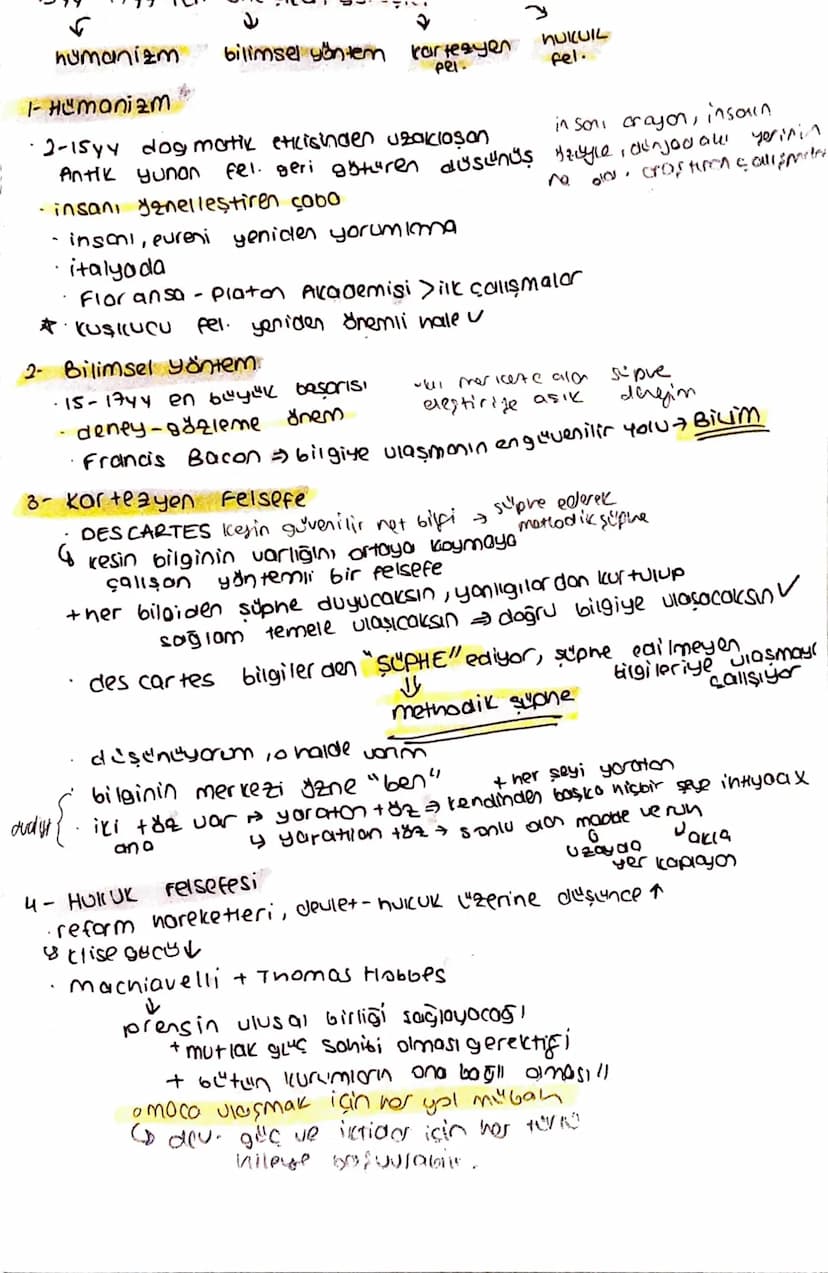 hümanizm bilimsel yöntem kartezyen fel. hukuk fel.
1- Hümanizm *
· 2-15yy dogmatik etkisinden uzaklaşan
Antik yunan fel. geri götüren düşünüş
insanı arayan, insanın
özüyle, dünyadaki yerinin
ne araştıran çalışmalar
· insanı yenelleştiren çaba
- insanı, evreni yeniden yorumlama
· italyada
· Floransa - Platon Akademisi > ilk çalışmalar
* · kuşkucu fel. yeniden önemli hale ✓
2- Bilimsel yöntem
· 15-17yy en büyük başarısı
· deney-gözleme önem
merkeze alan şüphe
eleştiriye açık deneyim
· Francis Bacon ⇒ bilgiye ulaşmanın en güvenilir yolu → BİLİM
3- Kartezyen Felsefe
· DESCARTES kesin güvenilir net bilgi → şüphe ederek
metodik şüphe
↳ kesin bilginin varlığını ortaya koymaya
çalışan yöntemli bir felsefe
+ her bilgiden şüphe duyucaksın, yanlıgılardan kurtulup
sağlam temele ulaşıcaksın ⇒ doğru bilgiye ulaşacaksın ✓
· des cartes bilgilerden "ŞÜPHE" ediyor, şüphe edilmeyen
bilgileriye ulaşmayı
çalışıyor
⇓
methodik şüphe
· düşünüyorum, o halde varım
bilginin merkezi özne "ben"
+ her şeyi yaratan
· iki töz var → yaratan töz ⇒ kendinden başka hiçbir şeye ihtiyaç x
ana ↳ yaratılan töz → sonlu olan madde ve ruh
uzayda
yer kaplayan
4- Hukuk Felsefesi
· reform hareketleri, devlet-hukuk üzerine düşünce ↑
↳ klise gücü ↓
· machiavelli + Thomas Hobbes
↓
prensin ulusal birliği sağlayacağı
+ mutlak güç sahibi olması gerektiği
+ bütün kurumların ona bağlı olması!!
amaca ulaşmak için her yol mübah
↳ dev. güç ve iktidar için her türlü
hileye başvurulabilir.